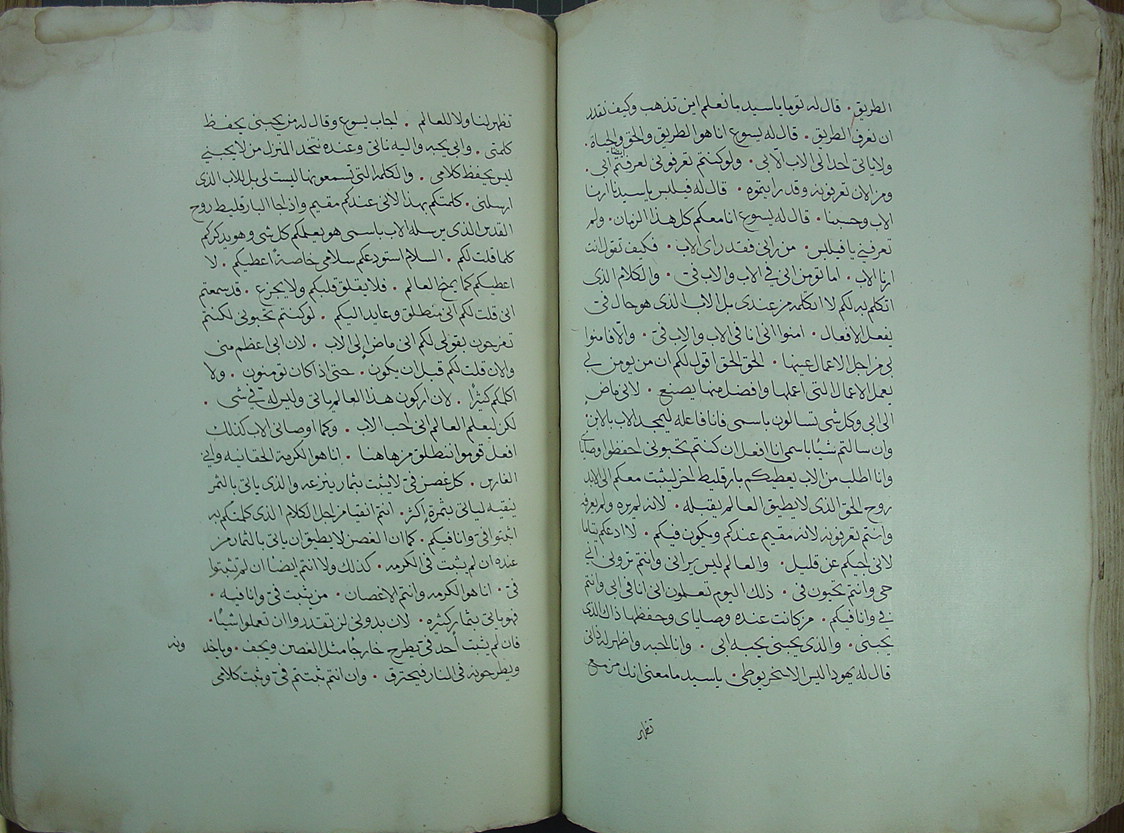 الطريق . قال له توما يا سيد ما نعلم اين تذهب وكيف نقدر
ان نعرف الطريق . قال له يسوع انا هو الطريق والحق والحياة .
ولا ياتي احد الى الاب الا بي . ولو كنتم تعرفوني لعرفتم ابي ايضا .
ومن الان تعرفونه وقد رايتموه . قال له فيلبس يا سيدنا ارنا
الاب وحسبنا . قال له يسوع انا معكم كل هذا الزمان . ولم
تعرفني يا فيلبس . من راني فقد راى الاب . فكيف تقول انت
ارنا الاب . اما تومن اني في الاب والاب في . والكلام الذى
اتكلم به لكم لا اتكلمه من عندى بل الاب الذى هو حال في
يفعل الافعال . امنوا اني انا في الاب والاب في . والا فامنوا
بي من اجل الاعمال عينها . الحق الحق اقول لكم ان من يومن بي
يعمل الاعمال التي اعملها وافضل منها يصنع . لاني ماض
الى ابي وكل شي تسالون باسمي فانا فاعله ليتمجد الاب بالابن
وان سالتم شيًا باسمي انا افعل ان كنتم تحبوني احفظوا وصاياى
وانا اطلب من الاب يعطيكم بارقليط اخر ليثبت معكم الى الابد
روح الحق الذى لا يطيق العالم يقبله . لانه لم يره ولم يعرفه
وانتم تعرفونه لانه مقيم عندكم ويكون فيكم . لا ادعكم يتاما
لاني اجيكم عن قليل . والعالم ليس يراني وانتم تروني اني
حي وانتم تحيون في . ذلك اليوم تعلمون اني انا في ابي وانتم
في وانا فيكم . من كانت عنده وصاياى وحفظها ذاك الذى
يحبني . والذى يحبني يحبه ابي . وانا احبه واظهر له ذاتي
قال له يهودا ليس الاسخريوطي . يا سيد ما معنى انك مزمع
تظهر
تظهر لنا ولا للعالم . اجاب يسوع وقال له من يحبني يحفظ
كلمتي . وابي يحبه واليه ناتي وعنده نتخد المنزل من لا يحبني
ليس يحفظ كلامي . والكلمه التي تسمعونها ليست لي بل للاب الذى
ارسلني . كلمتكم بهذا لاني عندكم مقيم واذا جا البارقليط روح
القدس الذى يرسله الاب باسمي هو يعلمكم كل شي وهو يذكركم
كلما قلت لكم . السلام استودعكم سلامي خاصة اعطيكم . لا
اعطيكم كما يمنح العالم . فلا يقلق قلبكم ولا يجزع . قد سمعتم
اني قلت لكم اني منطلق وعايد اليكم . لو كنتم تحبوني لكنتم
تفرحون بقولي لكم اني ماض الى الاب . لان ابي اعظم مني
والان قلت لكم قبل ان يكون . حتى اذا كان تومنون . ولا
اكلمكم كثيرًا . لان اركون هذا العالم ياتي وليس له في شي .
لكن ليعلم العالم اني احب الاب . وكما اوصاني الاب كذلك
افعل قوموا ننطلق من هاهنا . انا هو الكرمة الحقانيه وابي
الغارس . كل غصن في لا يثبت بثمار ينزعه والذى ياتي بالثمر
ينقيه لياتي بثمرة اكثر . انتم انقيا من اجل الكلام الذى كلمتكم به
اثبتوا في وانا فيكم . كما ان الغصن لا يطيق ان ياتي بالثمار من
عنده ان لم يثبت في الكرمه . كذلك ولا انتم ايضًا ان لم تثبتوا
في . انا هو الكرمه وانتم الاغصان . من يثبت في وانا فيه .
فهو ياتي بثمار كثيره . لان بدوني لن تقدروا ان تعملوا شيًا .
فان لم يثبت احد في يطرح خارجا مثل الغصن ويجف . وياخذونه
ويطرحونه في النار فيحترق . وان انتم ثبتم في وثبت كلامي